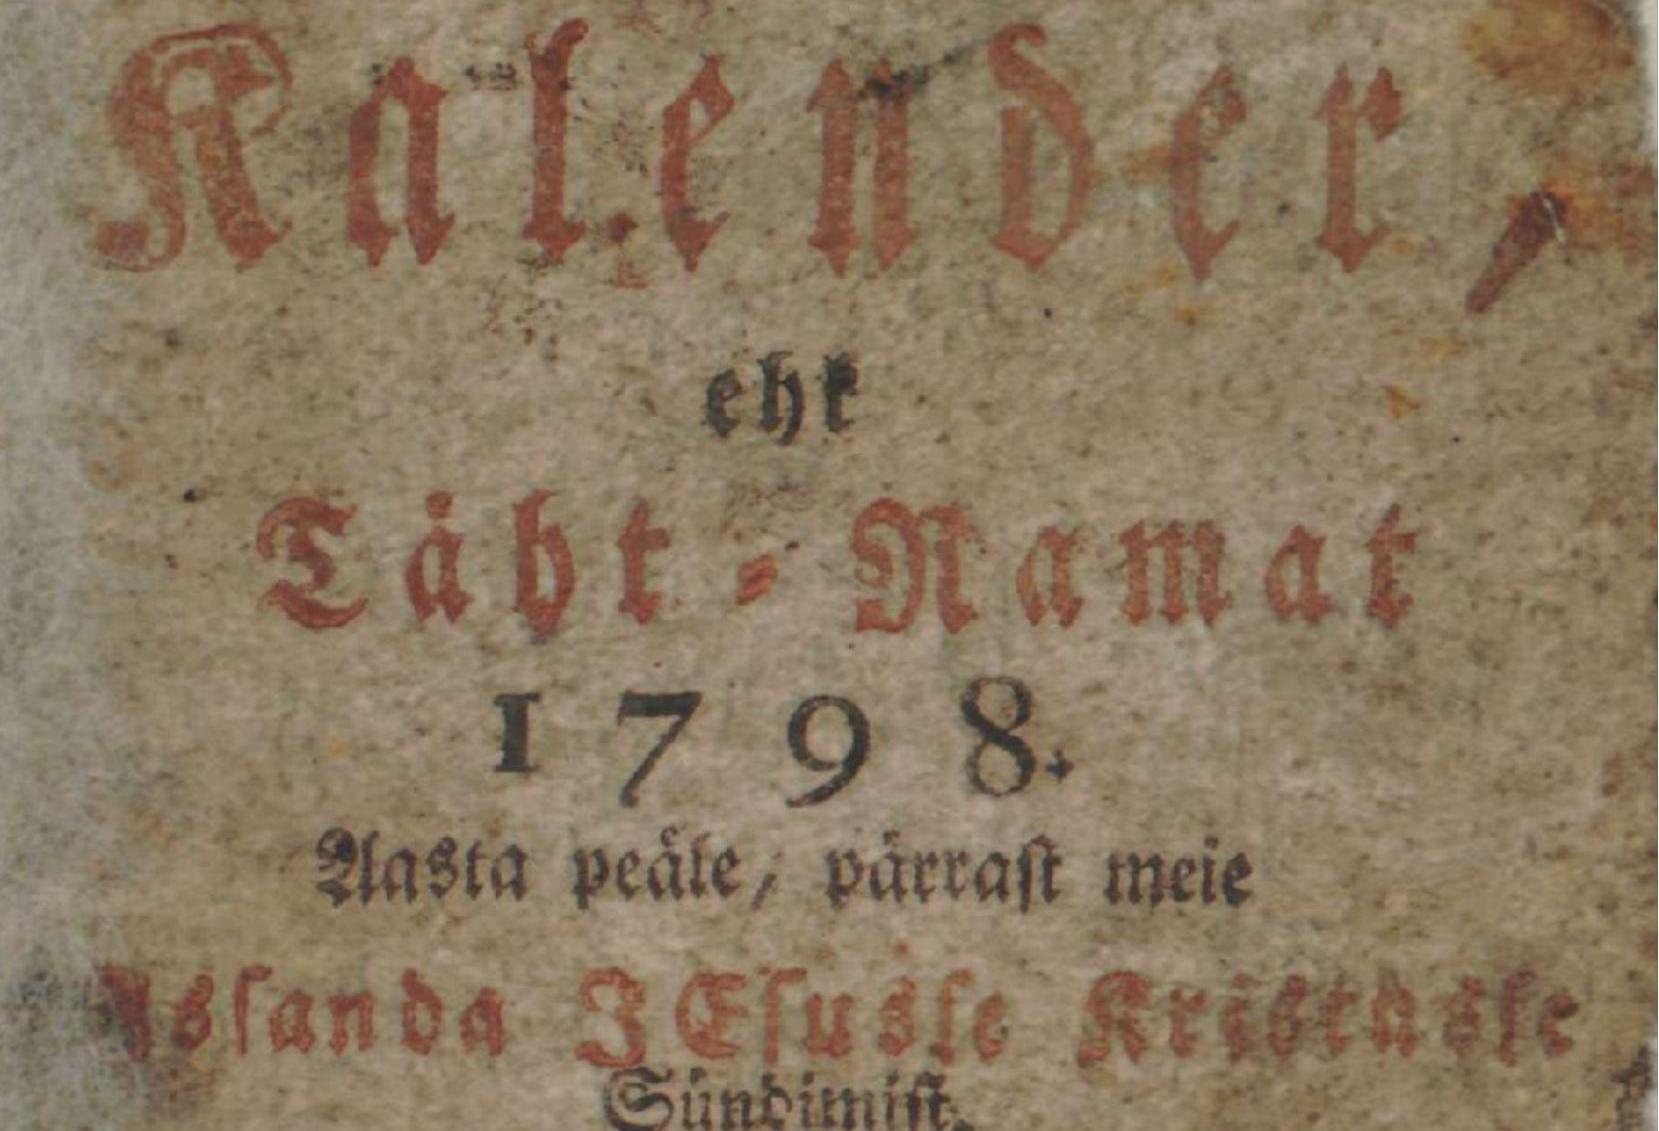 Kalender,
ehk
Täht-Ramat
1798.
Aasta peäle, pärrast meie
Issanda JEsusse Kristusse
Sündimist.